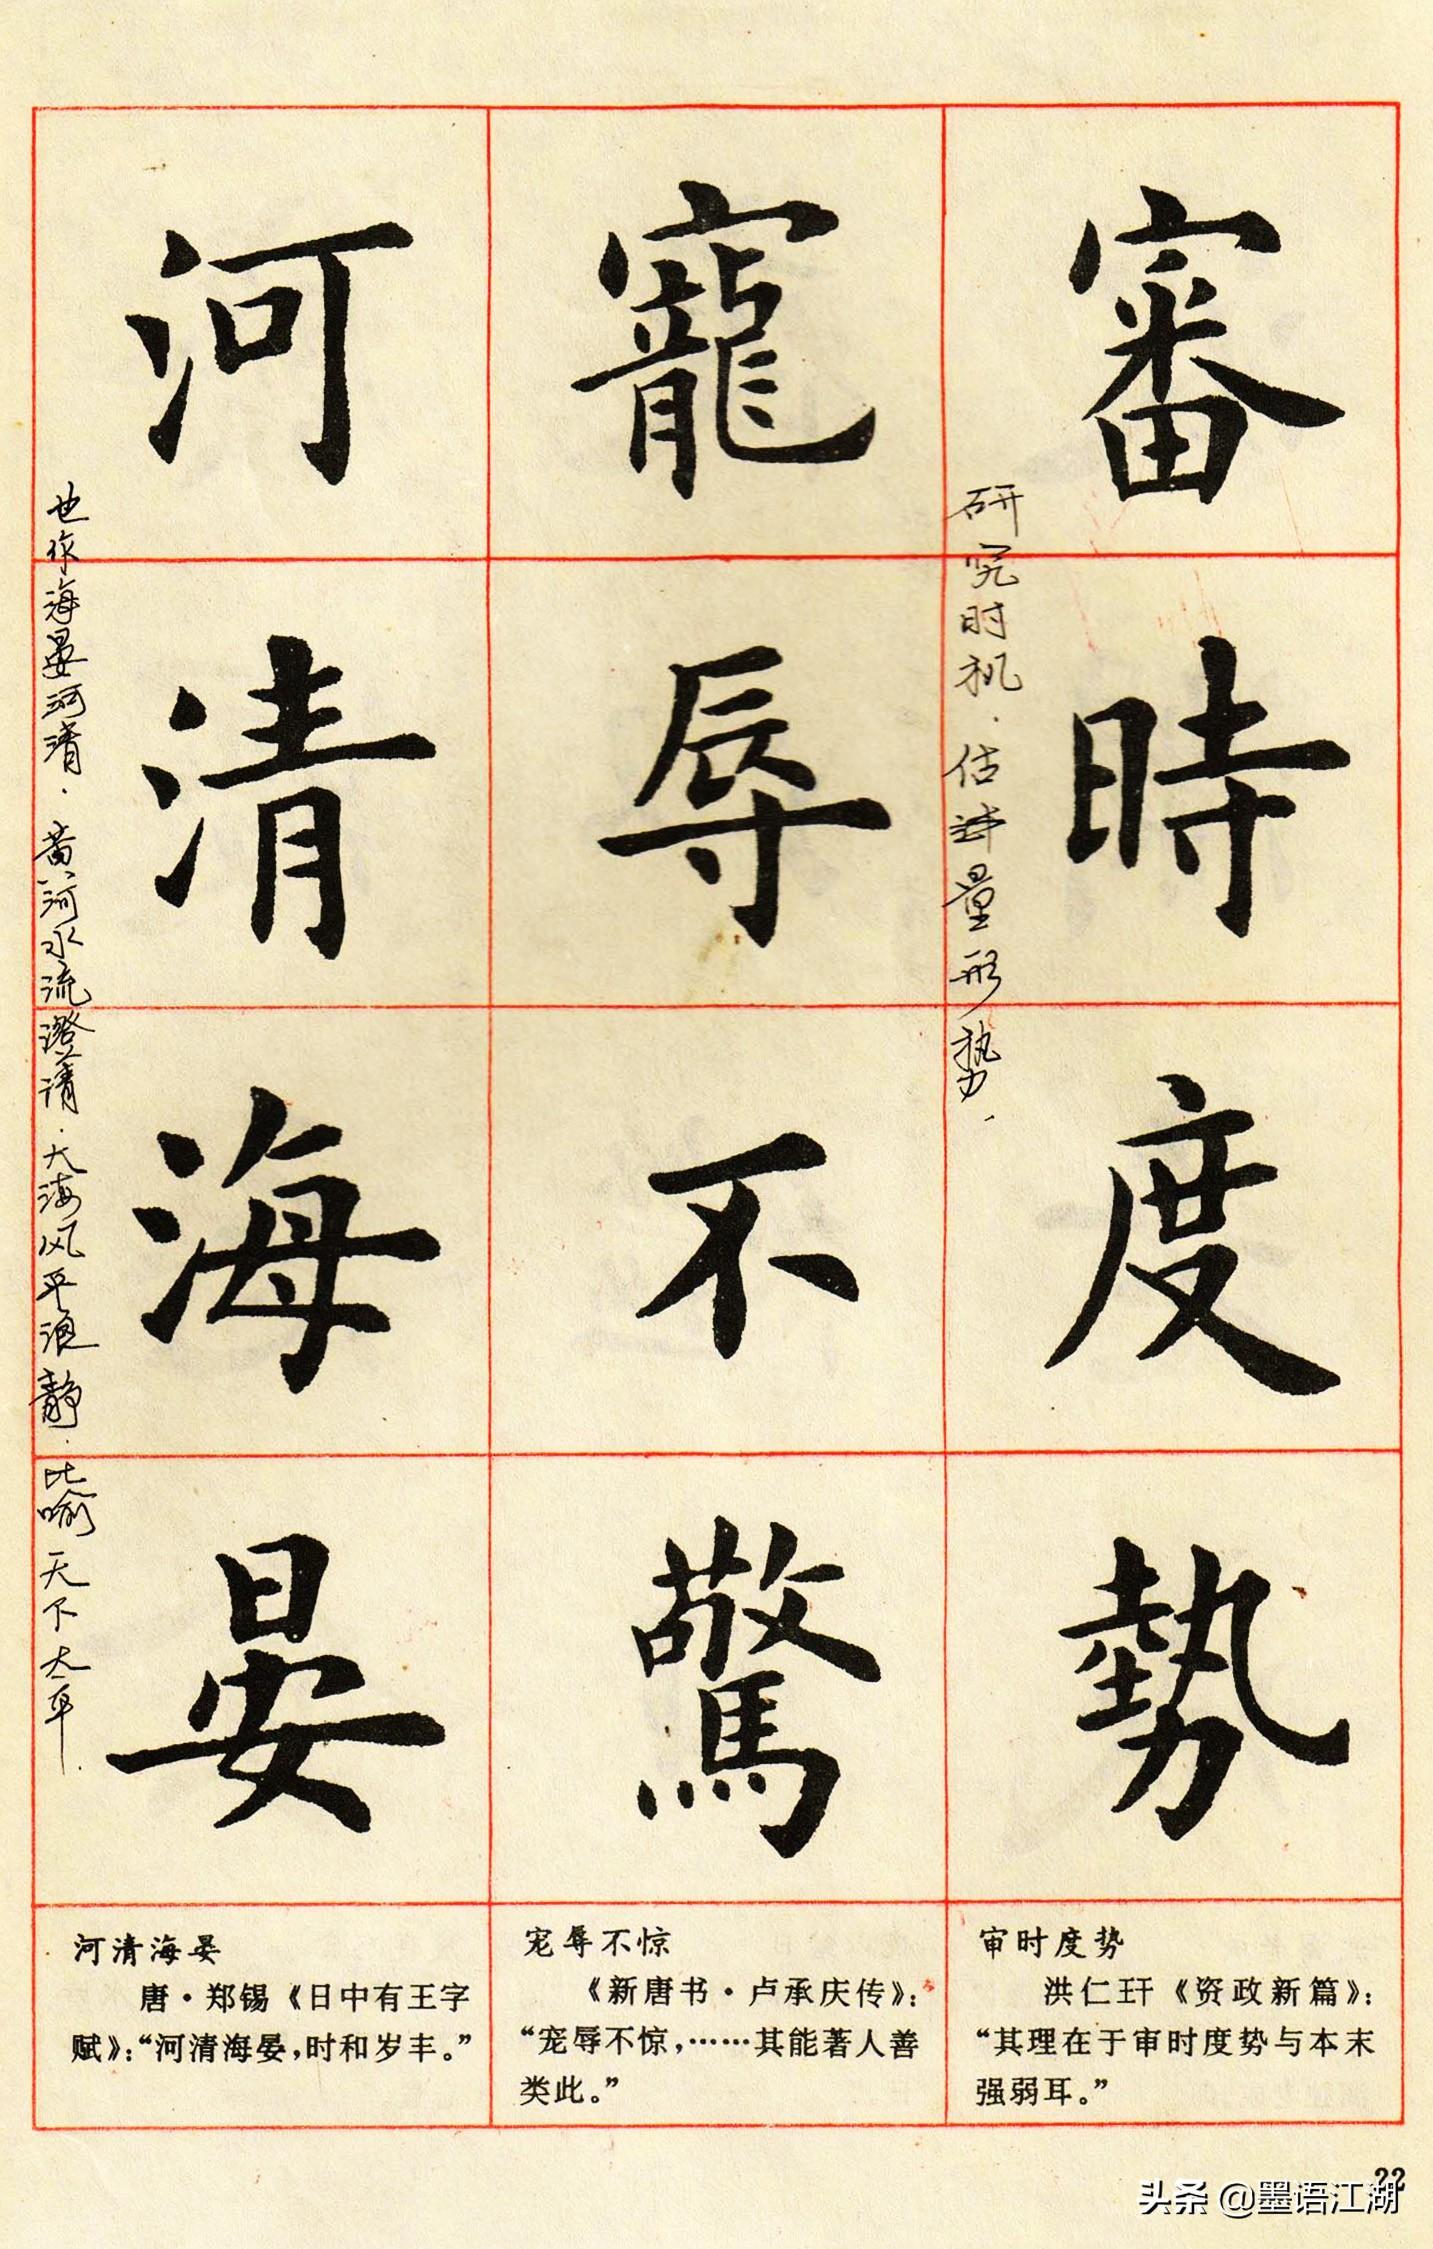 審時度勢
研究时机.估计量形势.
寵辱不驚
河清海晏
也作海晏河清.黄河水流澄清.大海风平浪静.比喻天下太平.
审时度势
洪仁玕《资政新篇》:
“其理在于审时度势与本末
强弱耳。”
宠辱不惊
《新唐书·卢承庆传》:
“宠辱不惊,……其能著人善
类此。”
河清海晏
唐·郑锡《日中有王字
赋》:“河清海晏,时和岁丰。”
22
头条 @墨语江湖